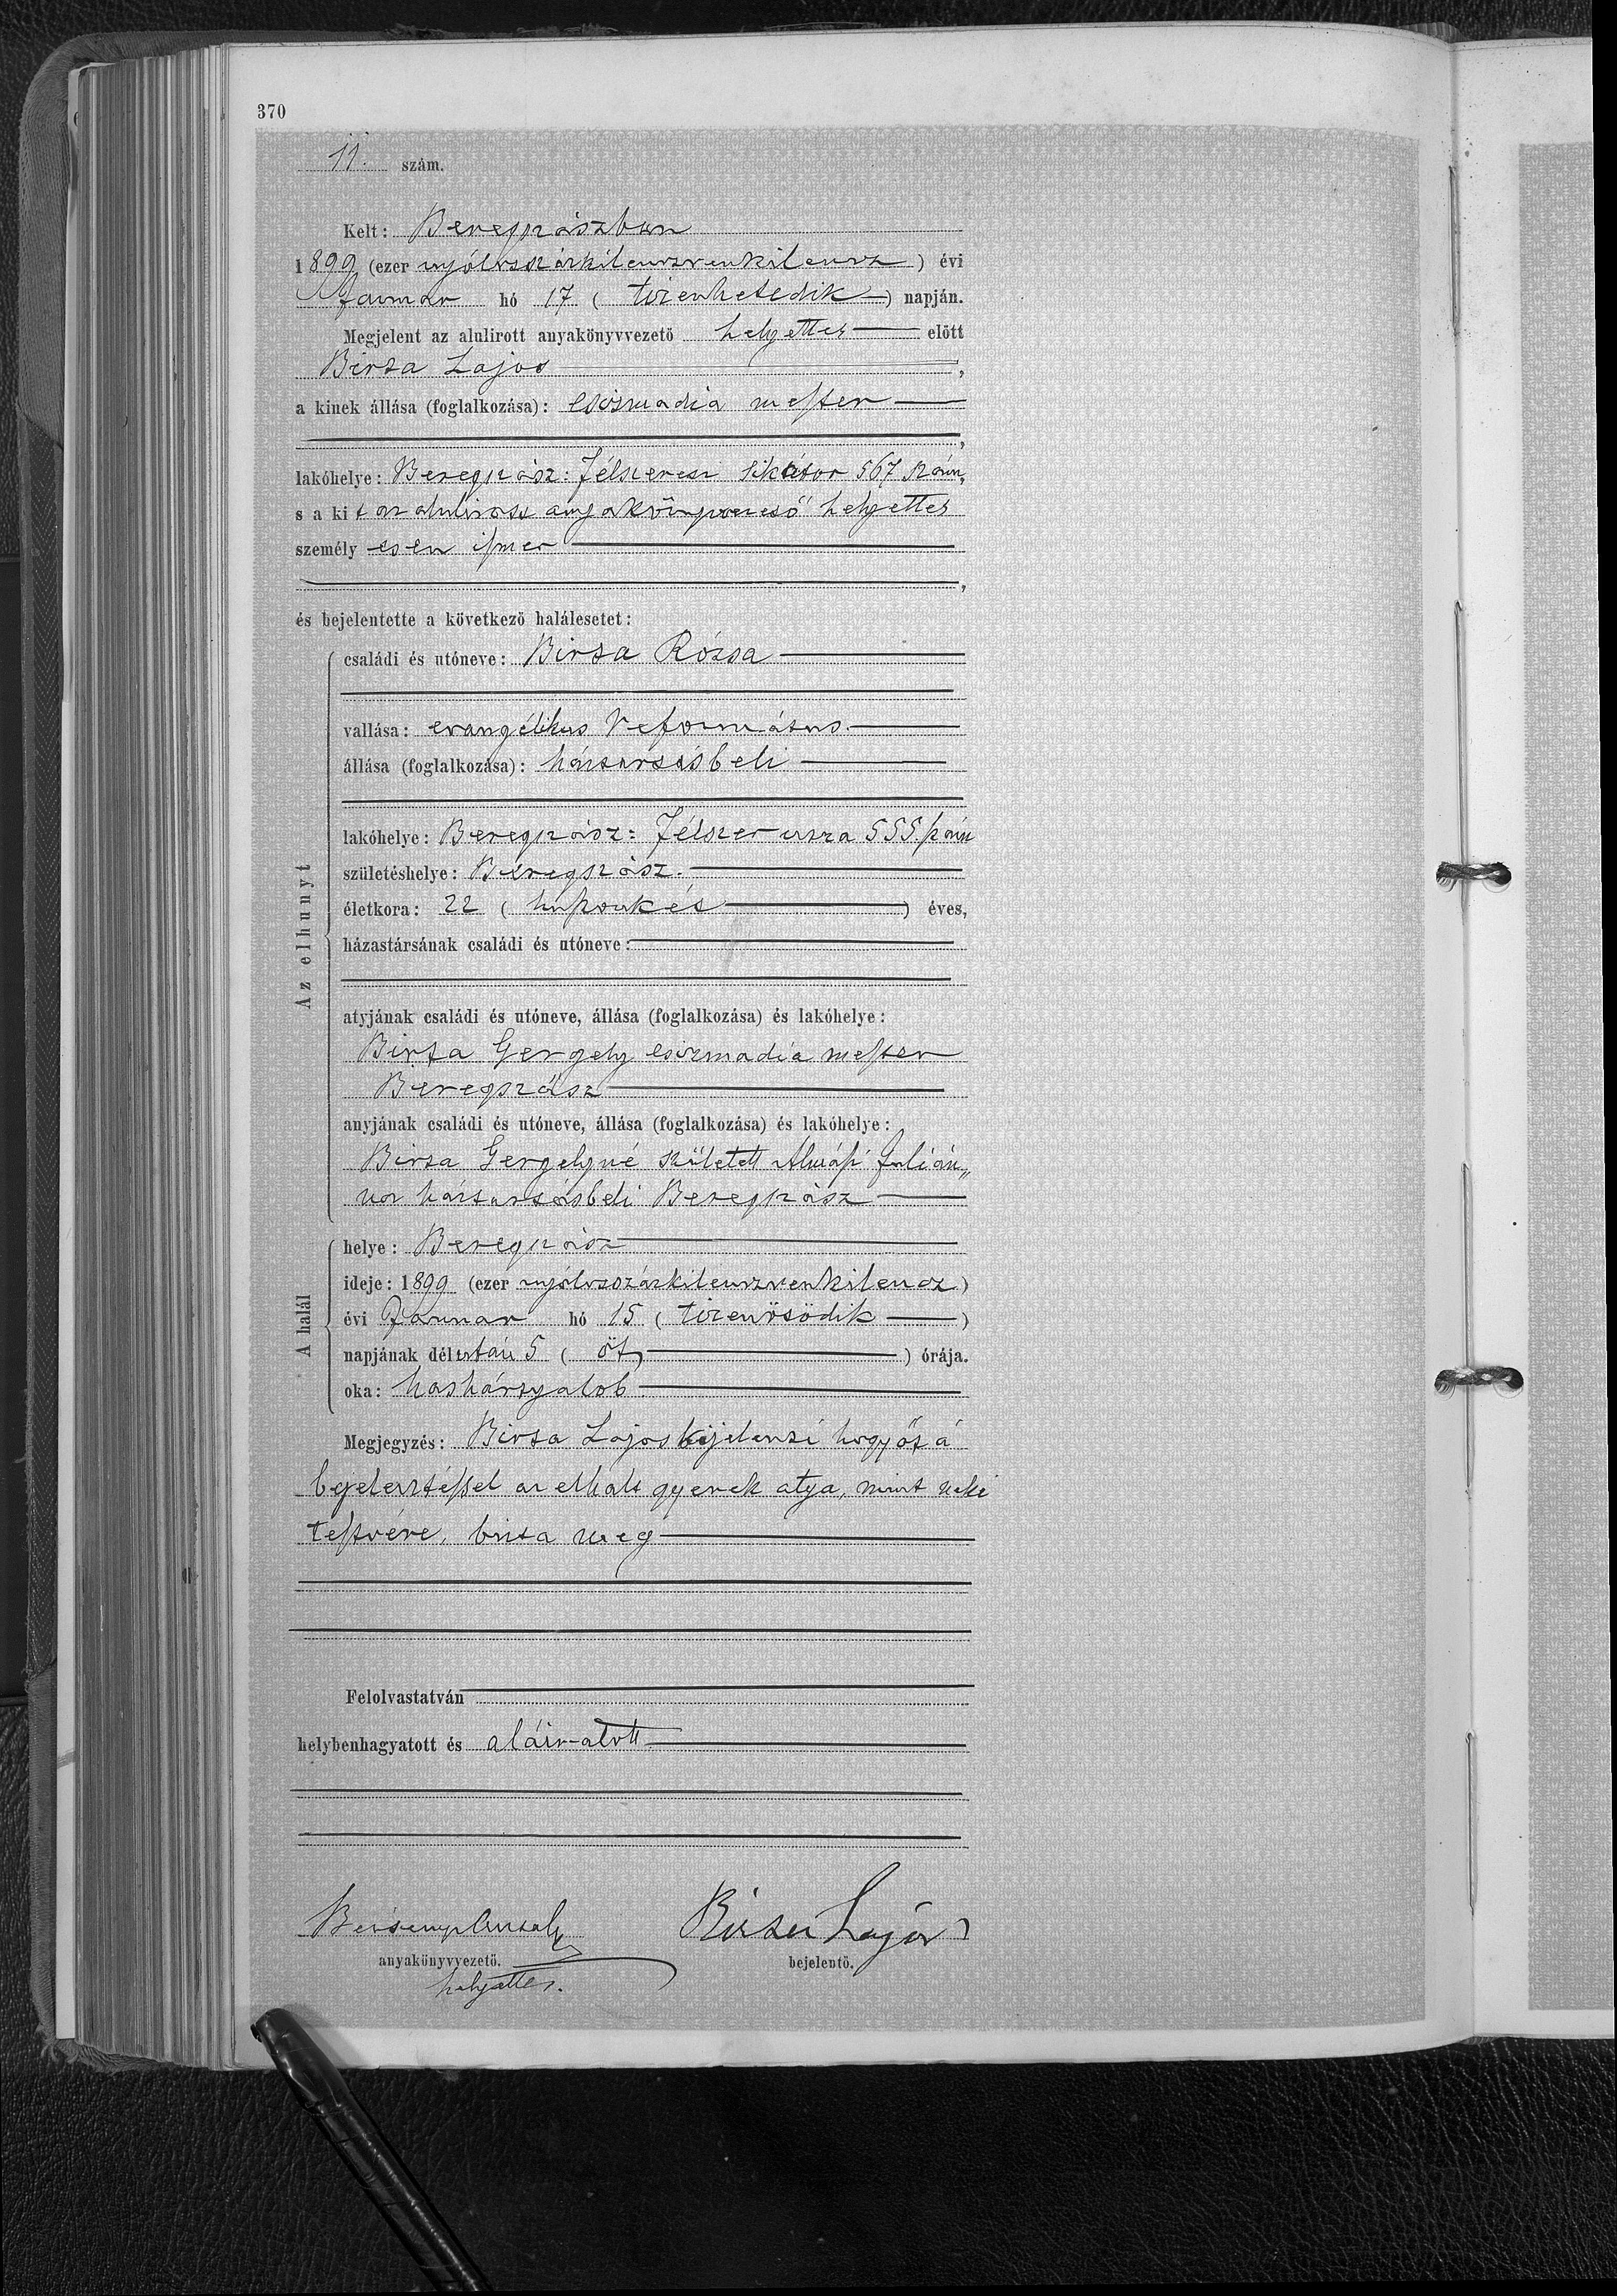 370
11. szám.
Kelt: Beregszászban
1899 (ezer nyólcszázkilenczvenkilencz) évi
Januar hó 17 (tizenhetedik) napján.
Megjelent az alulirott anyakönyvvezető helyettes előtt
Birta Lajos,
a kinek állása (foglalkozása): csizmadia mester
lakóhelye: Beregszász: Félszeresi sikátor 567 szám,
s a kit az alulirott anyakönyvvezető helyettes
személyesen ismer,
és bejelentette a következő halálesetet:
Az elhunyt
családi és utóneve: Birta Rózsa
vallása: evangélikus református
állása (foglalkozása): háztartásbeli
lakóhelye: Beregszász: Félszer utcza 555. szám
születéshelye: Beregszász.
életkora: 22 (huszonkét) éves,
házastársának családi és utóneve:
atyjának családi és utóneve, állása (foglalkozása) és lakóhelye:
Birta Gergely csizmadia mester
Beregszász
anyjának családi és utóneve, állása (foglalkozása) és lakóhelye:
Birta Gergelyné született Almási Julián„
na háztartásbeli Beregszász
A halál
helye: Beregszász
ideje: 1899 (ezer nyólczszázkilenczvenkilencz)
évi Januar hó 15 (tizenötödik)
napjának délután 5 (öt) órája.
oka: hashártyalob
Megjegyzés: Birta Lajos kijelenti hogy őt a
bejelentéssel az elhalt gyerek atya, mint neki
testvére, bizta meg
Felolvastatván
helybenhagyatott és aláiratott
Birta Lajos
anyakönyvvezető. bejelentő.
helyettes.